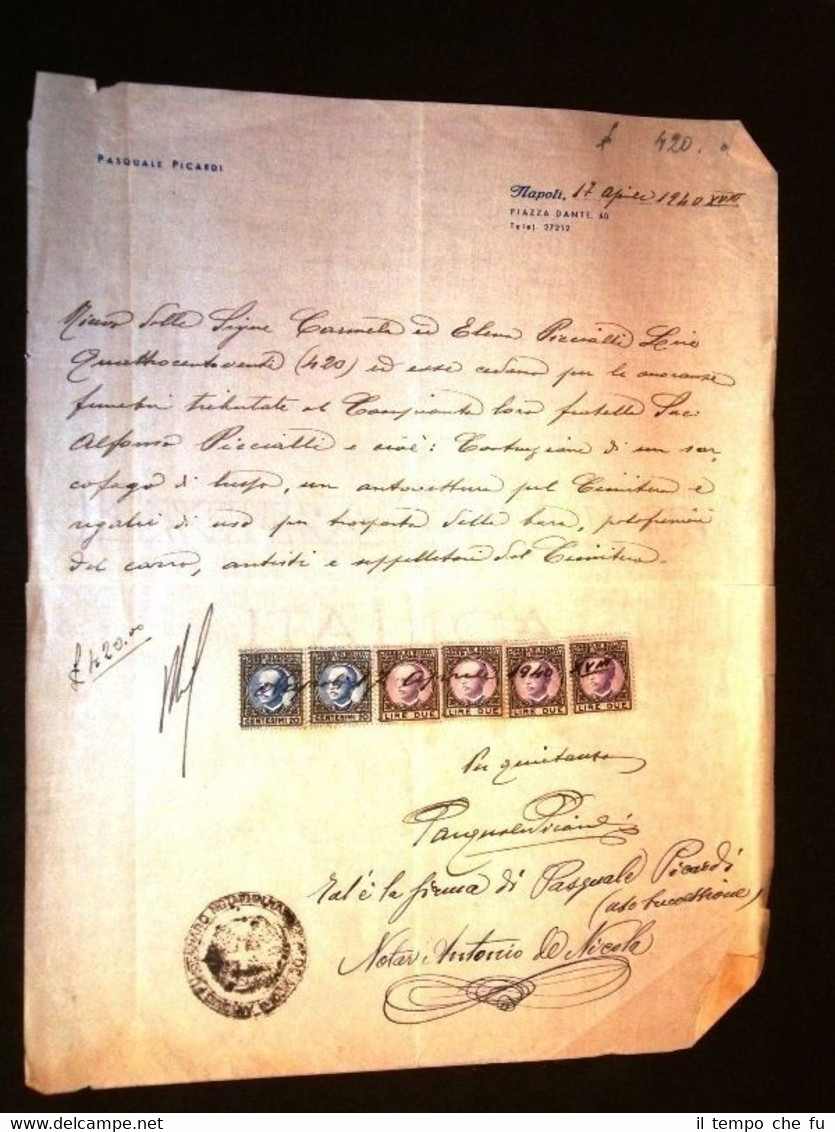 £ 420.
PASQUALE PICARDI
Napoli, 17 Aprile 1940 XVIII
PIAZZA DANTE, 60
Telef. 27212
delle Sigre Carmela ed Elena Piccialli Lire
Quattrocentoventi (420) ed esse cedono per le onoranze
funebri tributate al Compianto loro fratello
Alfonso Piccialli e cioè: Costruzione di un sar
cofago di lusso, un autovettura pel Cimitero e
regalie di uso per trasporto della bara,
del carro, artisti e seppellitori del Cimitero.
£ 420.00
Napoli 17 Aprile 1940 XVIII
CENTESIMI 20
CENTESIMI 20
LIRE DUE
LIRE DUE
LIRE DUE
LIRE DUE
Per quietanza
Pasquale Picardi
Tal'è la firma di Pasquale Picardi
(uso successione)
Notar Antonio de Nicola
il tempo che fu